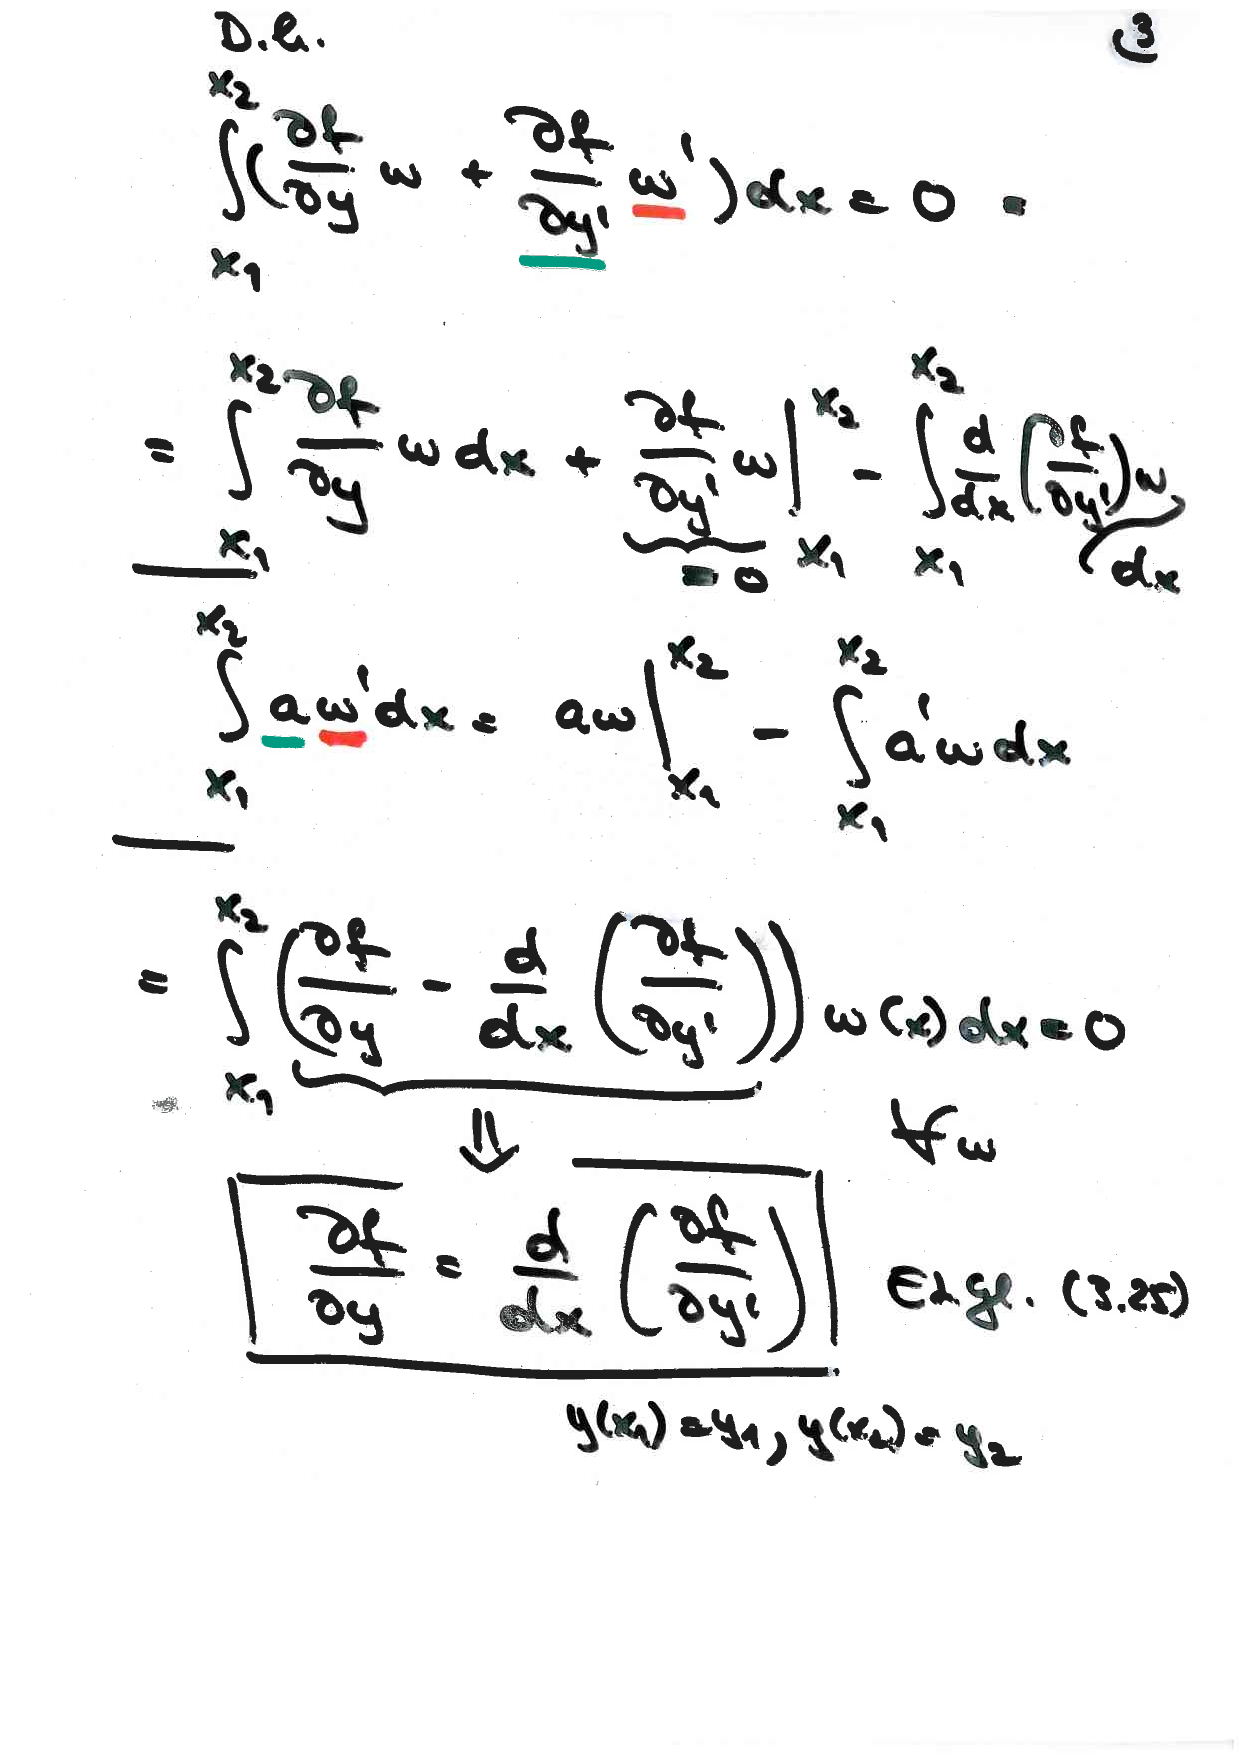 D.h. 3
∫_{x₁}^{x₂} (∂f/∂y ω + ∂f/∂y' ω') dx = 0 =
= ∫_{x₁}^{x₂} ∂f/∂y ω dx + ∂f/∂y' ω |_{x₁}^{x₂} - ∫_{x₁}^{x₂} d/dx (∂f/∂y') ω dx
= 0
∫_{x₁}^{x₂} a ω' dx = aω |_{x₁}^{x₂} - ∫_{x₁}^{x₂} a' ω dx
= ∫_{x₁}^{x₂} (∂f/∂y - d/dx (∂f/∂y')) ω(x) dx = 0
⇓ ∀ω
∂f/∂y = d/dx (∂f/∂y') ELgl. (3.25)
y(x₁) = y₁, y(x₂) = y₂